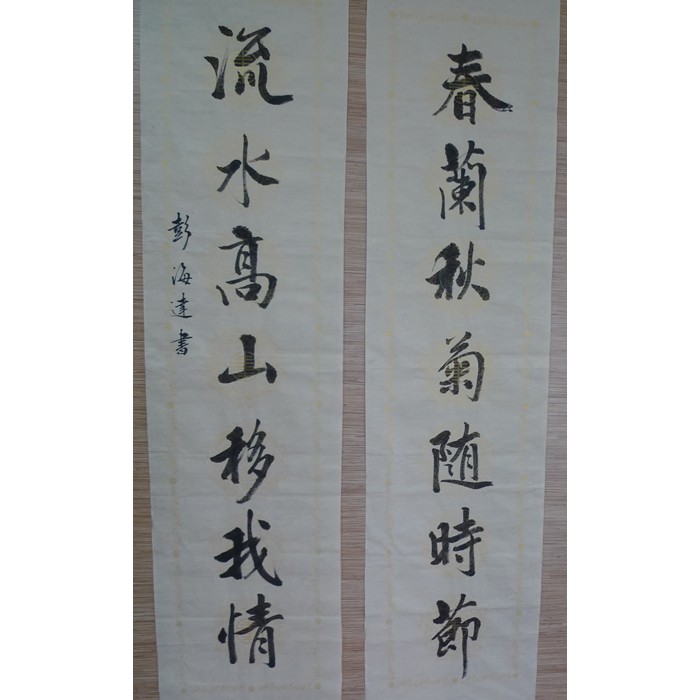 春蘭秋菊随時節
流水高山移我情
彭海達書